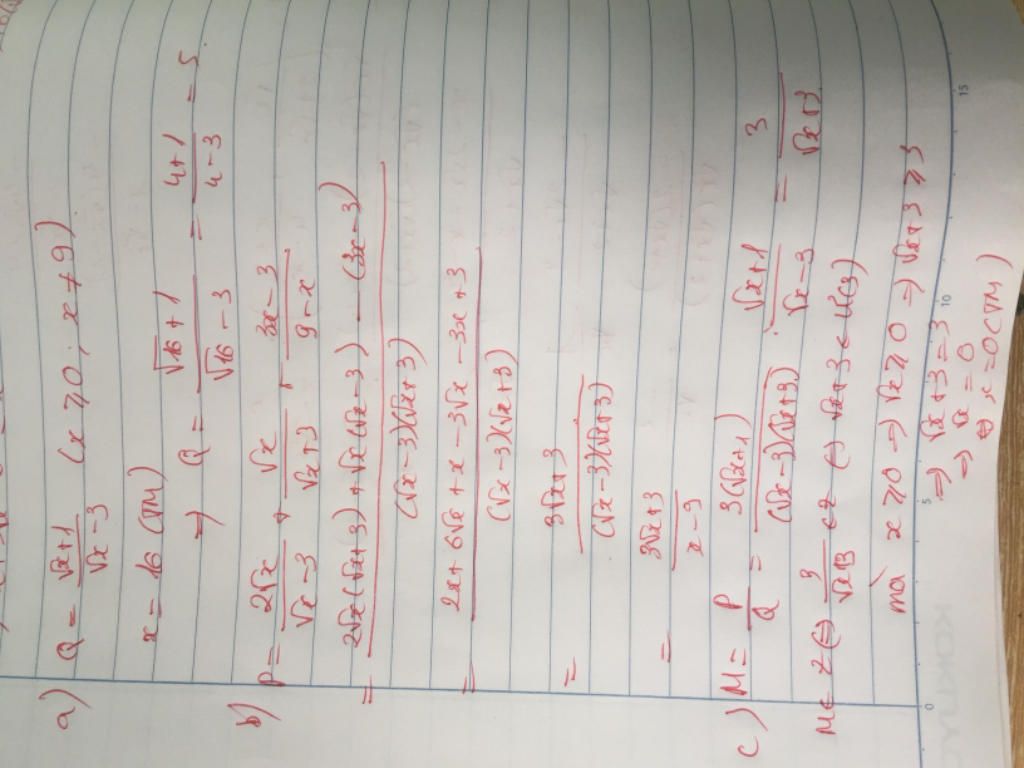 a) Q = (√x+1)/(√x-3) (x ≥ 0; x ≠ 9)
x = 16 (TM)
=> Q = (√16+1)/(√16-3) = (4+1)/(4-3) = 5
b) P = 2√x/(√x-3) + √x/(√x+3) + (3x-3)/(9-x)
= (2√x(√x+3) + √x(√x-3) - (3x-3))/((√x-3)(√x+3))
= (2x+6√x+x-3√x-3x+3)/((√x-3)(√x+3))
= (3√x+3)/((√x-3)(√x+3))
= (3√x+3)/(x-9)
c) M = P/Q = 3(√x+1)/((√x-3)(√x+3)) : (√x+1)/(√x-3) = 3/(√x+3)
M ∈ Z <=> 3/(√x+3) ∈ Z <=> √x+3 ∈ Ư(3)
mà x ≥ 0 => √x ≥ 0 => √x+3 ≥ 3
=> √x+3 = 3
=> √x = 0
<=> x = 0 (TM)
0 5 10 15